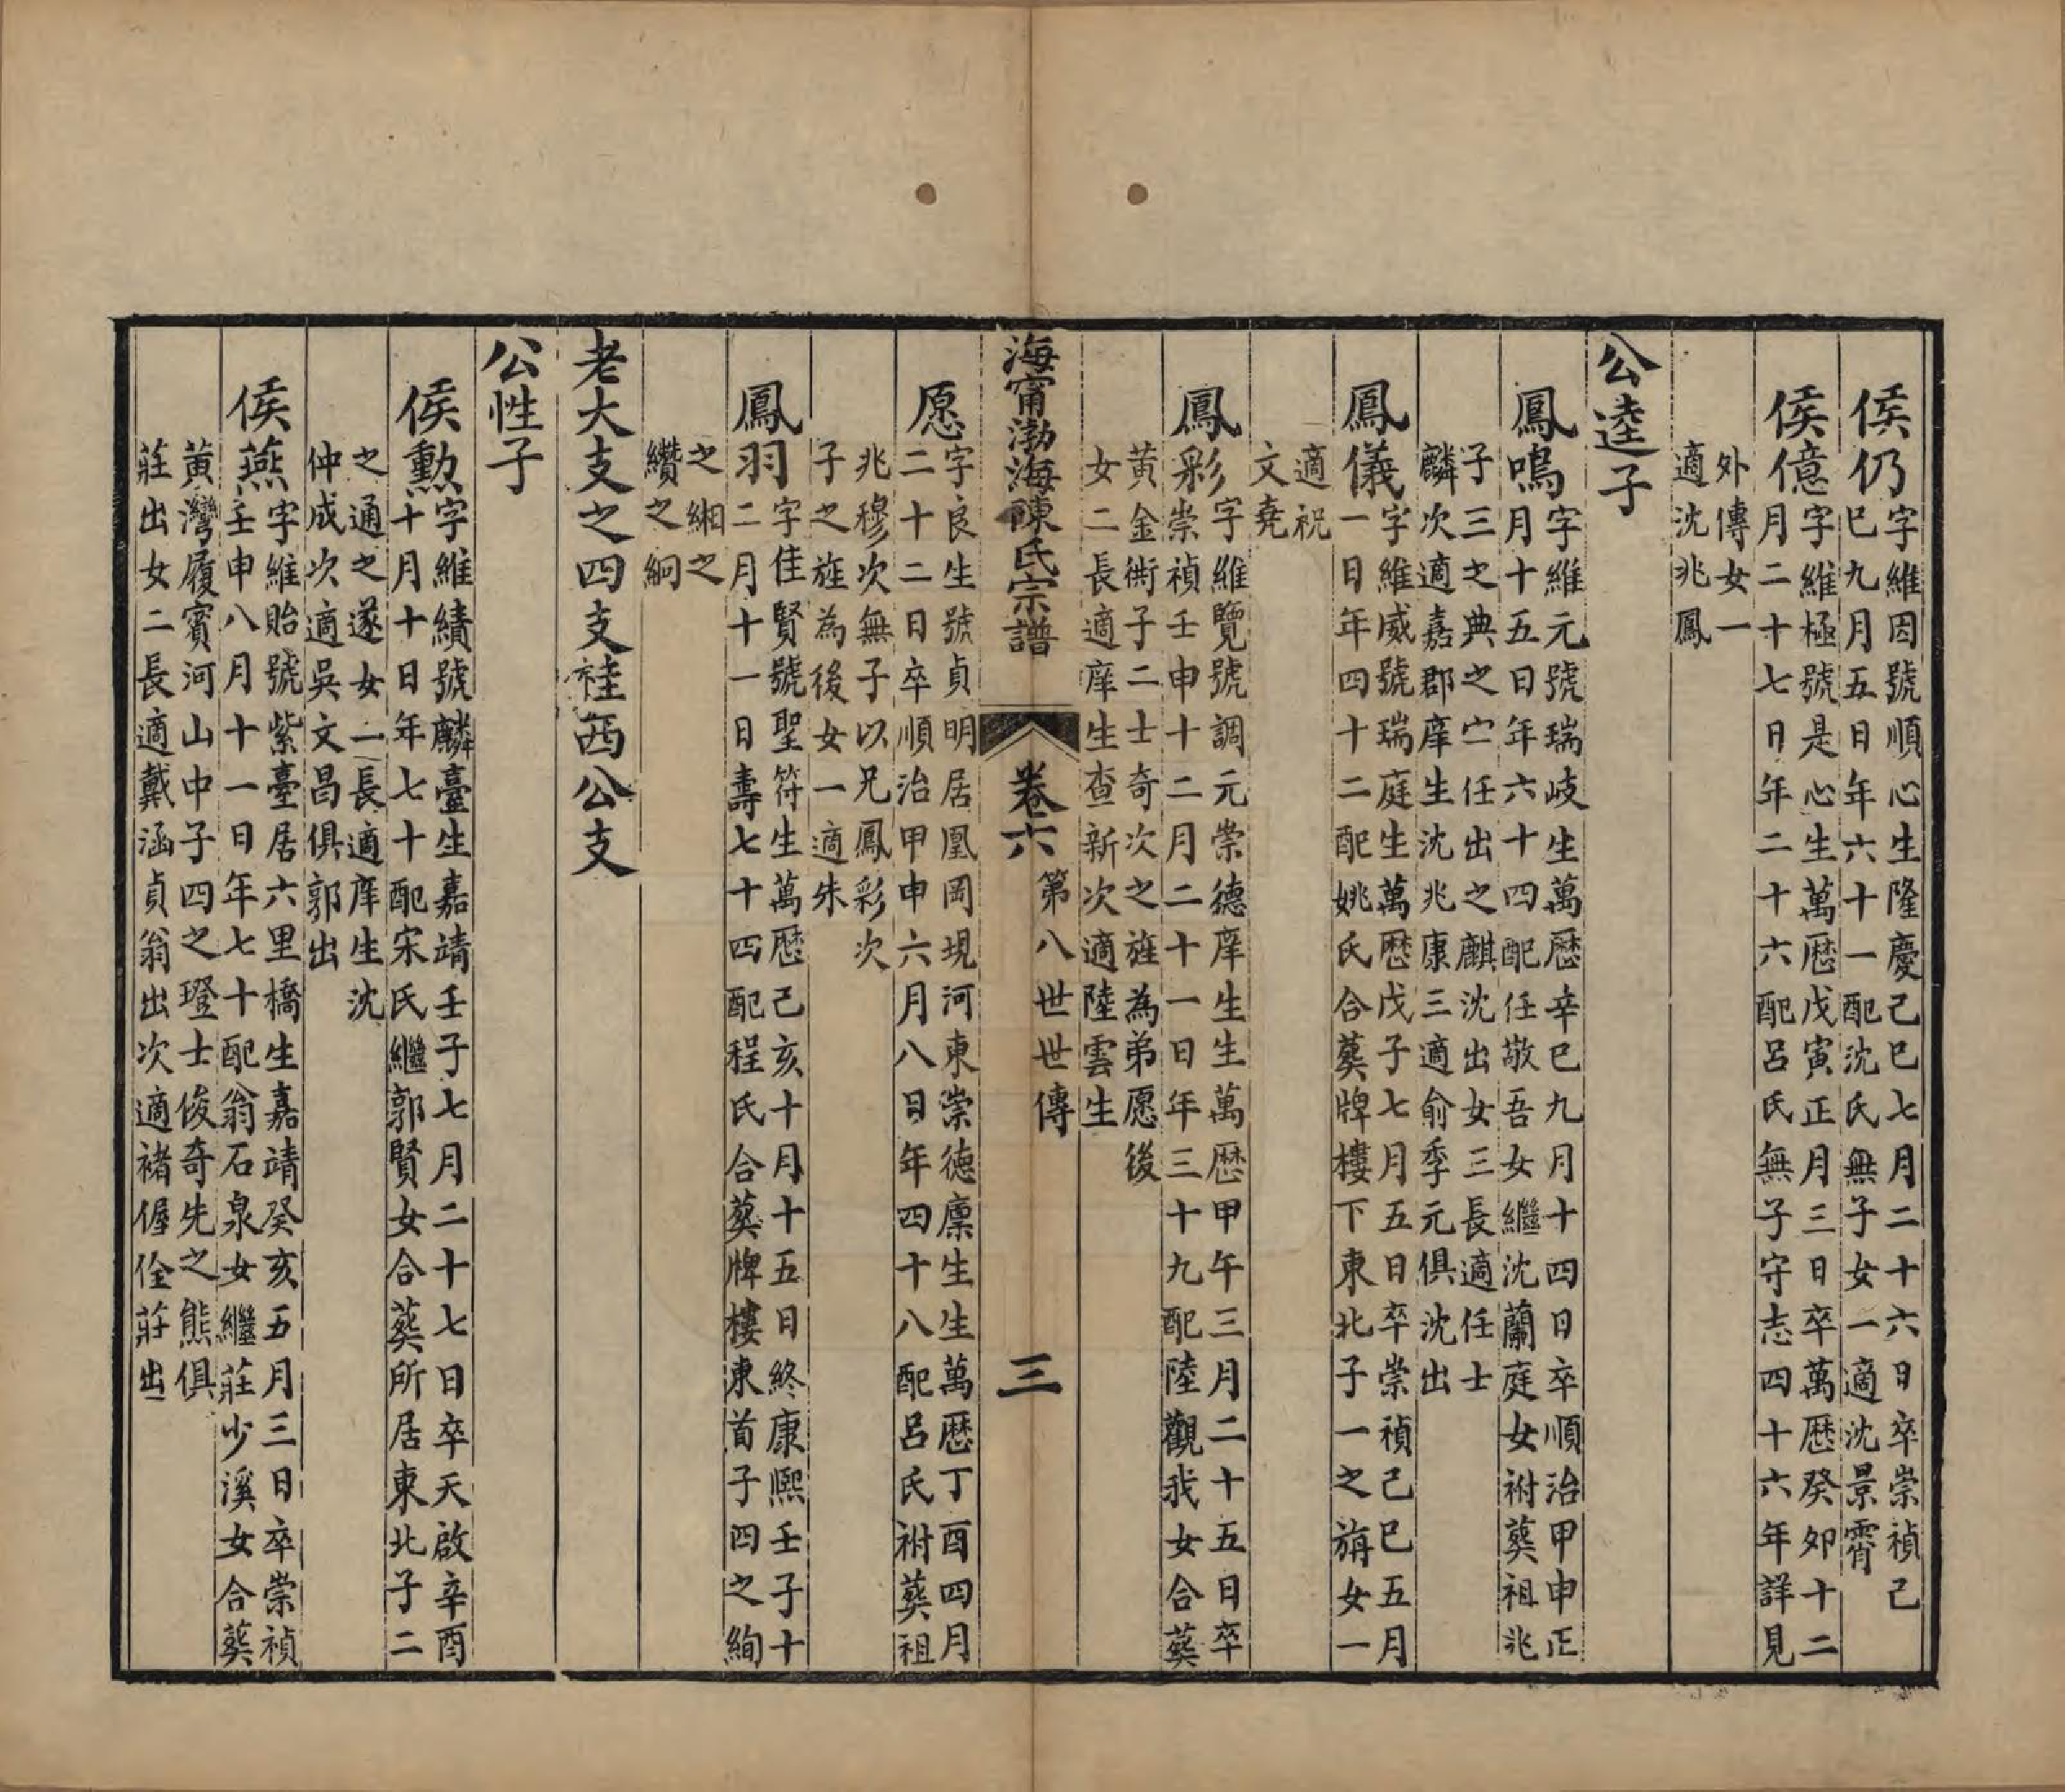 侯仍字維因號順心生隆慶己巳七月二十六日卒崇禎己
巳九月五日年六十一配沈氏無子女一適沈景霄
侯億字維極號是心生萬歷戊寅正月三日卒萬歷癸卯十二
月二十七日年二十六配呂氏無子守志四十六年詳見
外傳女一
適沈兆鳳
公逵子
鳳鳴字維元號瑞岐生萬歷辛巳九月十四日卒順治甲申正
月十五日年六十四配任敬吾女繼沈蘭庭女祔葬祖兆
子三之典之宀任出之麒沈出女三長適任士
麟次適嘉郡庠生沈兆康三適俞季元俱沈出
鳳儀字維威號瑞庭生萬歷戊子七月五日卒崇禎己巳五月
一日年四十二配姚氏合葬牌樓下東北子一之旃女一
適祝
文堯
鳳彩字維覽號調元崇德庠生生萬歷甲午三月二十五日卒
崇禎壬申十二月二十一日年三十九配陸觀我女合葬
黃金衖子二士奇次之旌為弟愿後
女二長適庠生查新次適陸雲生
海甯渤海陳氏宗譜 卷六 第八世世傳 三
愿字良生號貞明居凰岡現河東崇德廩生生萬歷丁酉四月
二十二日卒順治甲申六月八日年四十八配呂氏祔葬祖
兆穆次無子以兄鳳彩次
子之旌為後女一適朱
鳳羽字佳賢號聖符生萬歷己亥十月十五日終康熙壬子十
二月十一日壽七十四配程氏合葬牌樓東首子四之絢
之緗之
纘之絅
老大支之四支袿西公支
公性子
侯勳字維績號麟臺生嘉靖壬子七月二十七日卒天啟辛酉
十月十日年七十配宋氏繼郭賢女合葬所居東北子二
之通之遂女二長適庠生沈
仲成次適吳文昌俱郭出
侯燕字維貽號紫臺居六里橋生嘉靖癸亥五月三日卒崇禎
壬申八月十一日年七十配翁石泉女繼莊少溪女合葬
黃灣履賓河山中子四之璒士俊奇先之熊俱
莊出女二長適戴涵貞翁出次適褚偓佺莊出